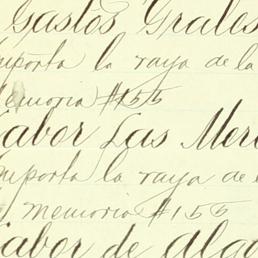 Gastos Grales
Importa la raya de la
Memoria #155
Labor Las Mer
Importa la raya de
Memoria #155
Labor de Algo